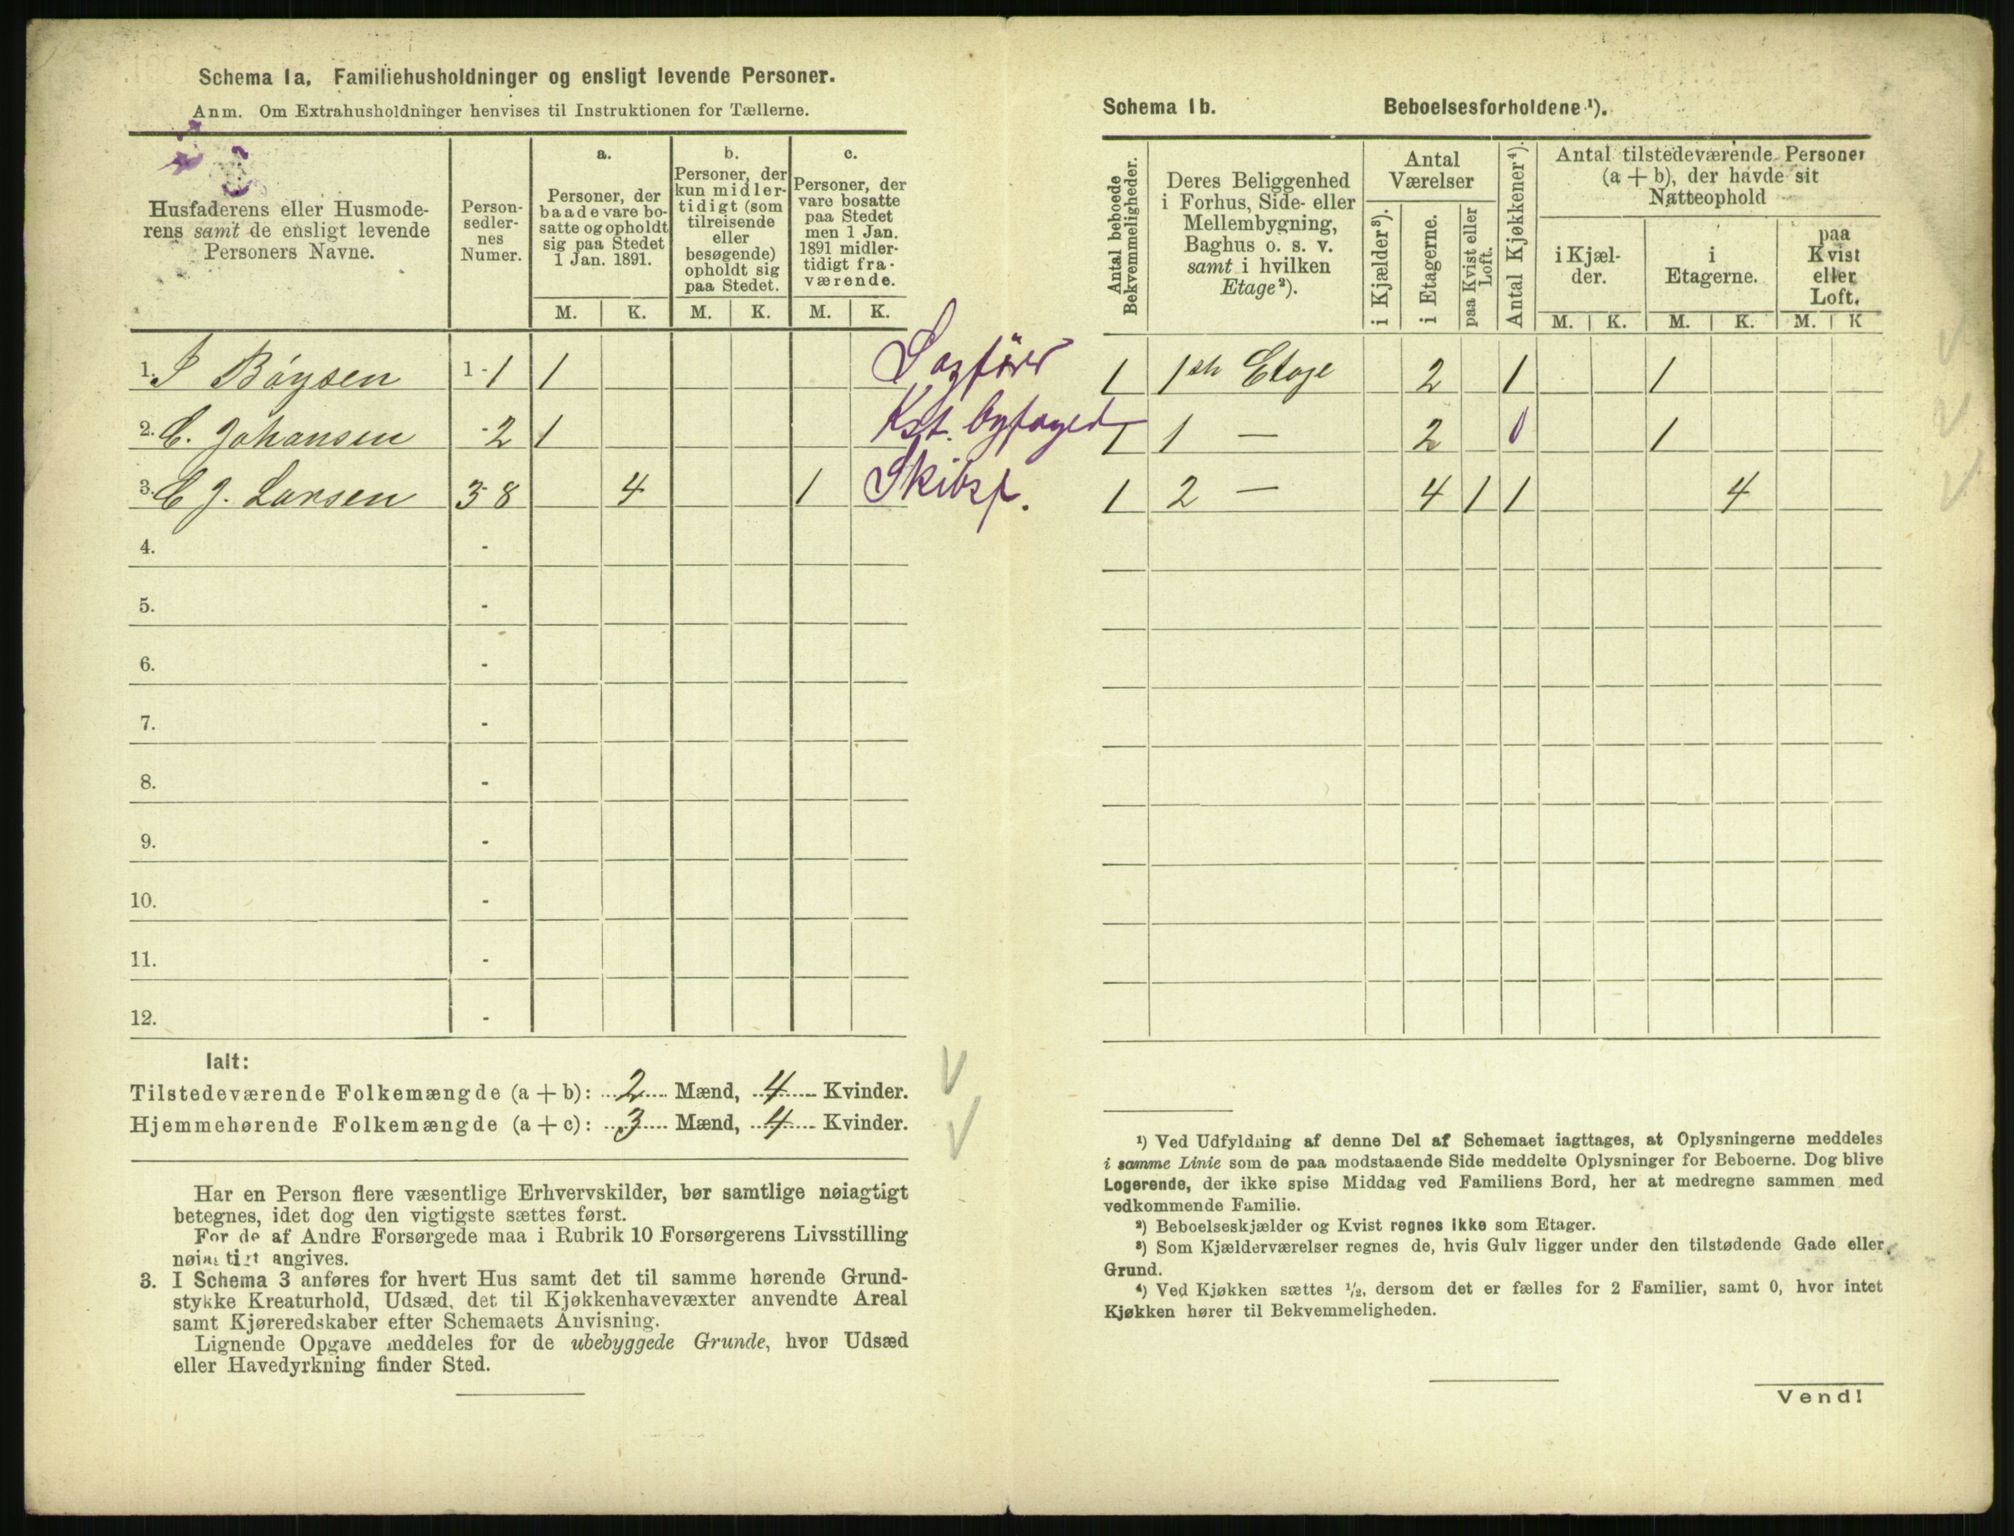 Schema 1a. Familiehusholdninger og ensligt levende Personer.
Anm. Om Extrahusholdninger henvises til Instruktionen for Tællerne.
Husfaderens eller Husmoderens samt de ensligt levende Personers Navne.
Personsedlernes Numer.
a.
Personer, der baade vare bosatte og opholdt sig paa Stedet 1 Jan. 1891.
b.
Personer, der kun midlertidigt (som tilreisende eller besøgende) opholdt sig paa Stedet.
c.
Personer, der vare bosatte paa Stedet men 1 Jan. 1891 midlertidigt fraværende.
M. K. M. K. M. K.
1. J Bøysen 1-1 1 Sagfører
2. C. Johansen -2 1 Kst. byfoged
3. C J. Larsen 3-8 4 1 Skibsf.
4. -
5. -
6. -
7. -
8. -
9. -
10. -
11. -
12. -
Ialt:
Tilstedeværende Folkemængde (a + b): 2 Mænd, 4 Kvinder.
Hjemmehørende Folkemængde (a + c): 3 Mænd, 4 Kvinder.
Har en Person flere væsentlige Erhvervskilder, bør samtlige nøiagtigt
betegnes, idet dog den vigtigste sættes først.
For de af Andre Forsørgede maa i Rubrik 10 Forsørgerens Livsstilling
angives.
3. I Schema 3 anføres for hvert Hus samt det til samme hørende Grund-
stykke Kreaturhold, Udsæd, det til Kjøkkenhavevæxter anvendte Areal
samt Kjøreredskaber efter Schemaets Anvisning.
Lignende Opgave meddeles for de ubebyggede Grunde, hvor Udsæd
eller Havedyrkning finder Sted.
Schema 1b. Beboelsesforholdene ¹).
Antal beboede Bekvemmeligheder.
Deres Beliggenhed i Forhus, Side- eller Mellembygning, Baghus o. s. v. samt i hvilken Etage²).
Antal Værelser
i Kjælder³).
i Etagerne.
paa Kvist eller Loft.
Antal Kjøkkener⁴).
Antal tilstedeværende Personer (a + b), der havde sit Natteophold
i Kjælder.
i Etagerne.
paa Kvist eller Loft.
M. K. M. K. M. K
1 1ste Etage 2 1 1
1 1 — 2 0 1
1 2 — 4 1 1 4
¹) Ved Udfyldning af denne Del af Schemaet iagttages, at Oplysningerne meddeles
i samme Linie som de paa modstaaende Side meddelte Oplysninger for Beboerne. Dog blive
Logerende, der ikke spise Middag ved Familiens Bord, her at medregne sammen med
vedkommende Familie.
²) Beboelseskjælder og Kvist regnes ikke som Etager.
³) Som Kjælderværelser regnes de, hvis Gulv ligger under den tilstødende Gade eller
Grund.
⁴) Ved Kjøkken sættes ½, dersom det er fælles for 2 Familier, samt 0, hvor intet
Kjøkken hører til Bekvemmeligheden.
Vend!